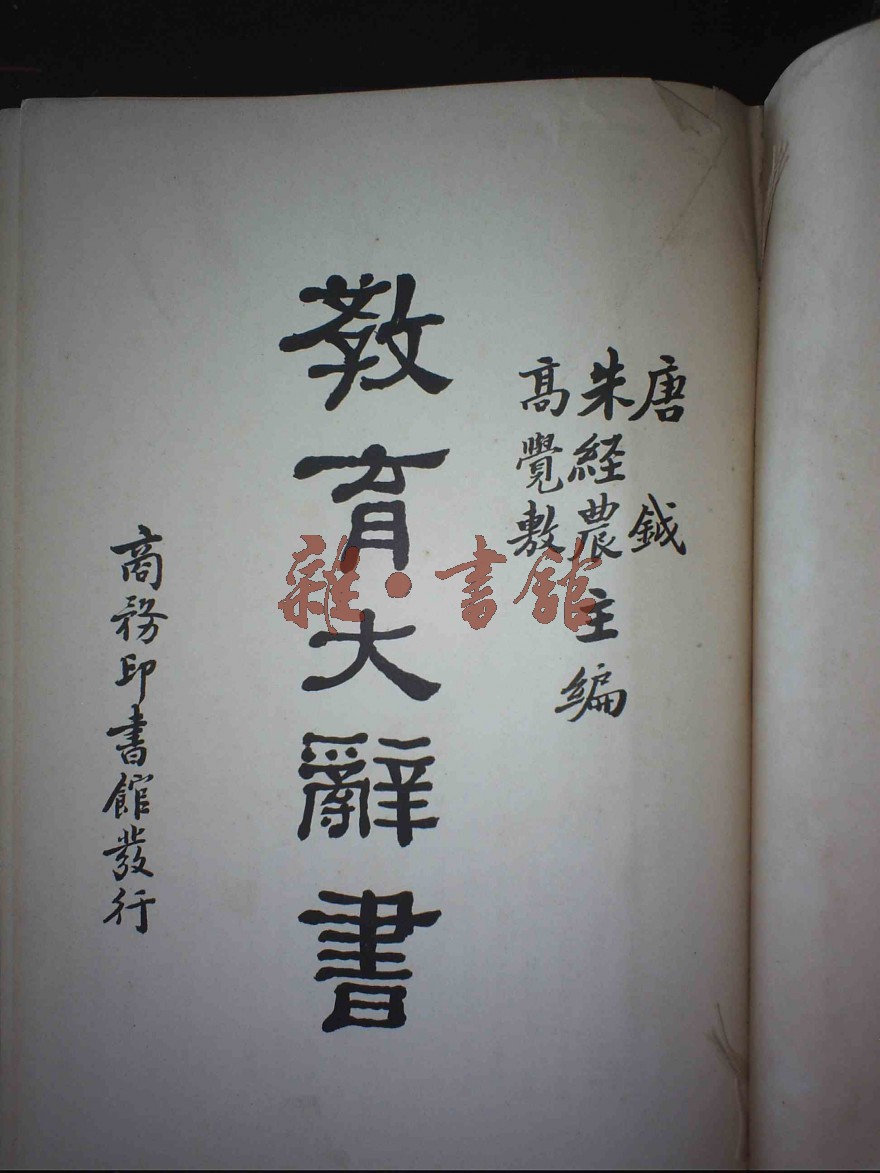 唐鉞
朱経農主編
高覺敷
教育大辭書
商務印書館發行
雜·書館